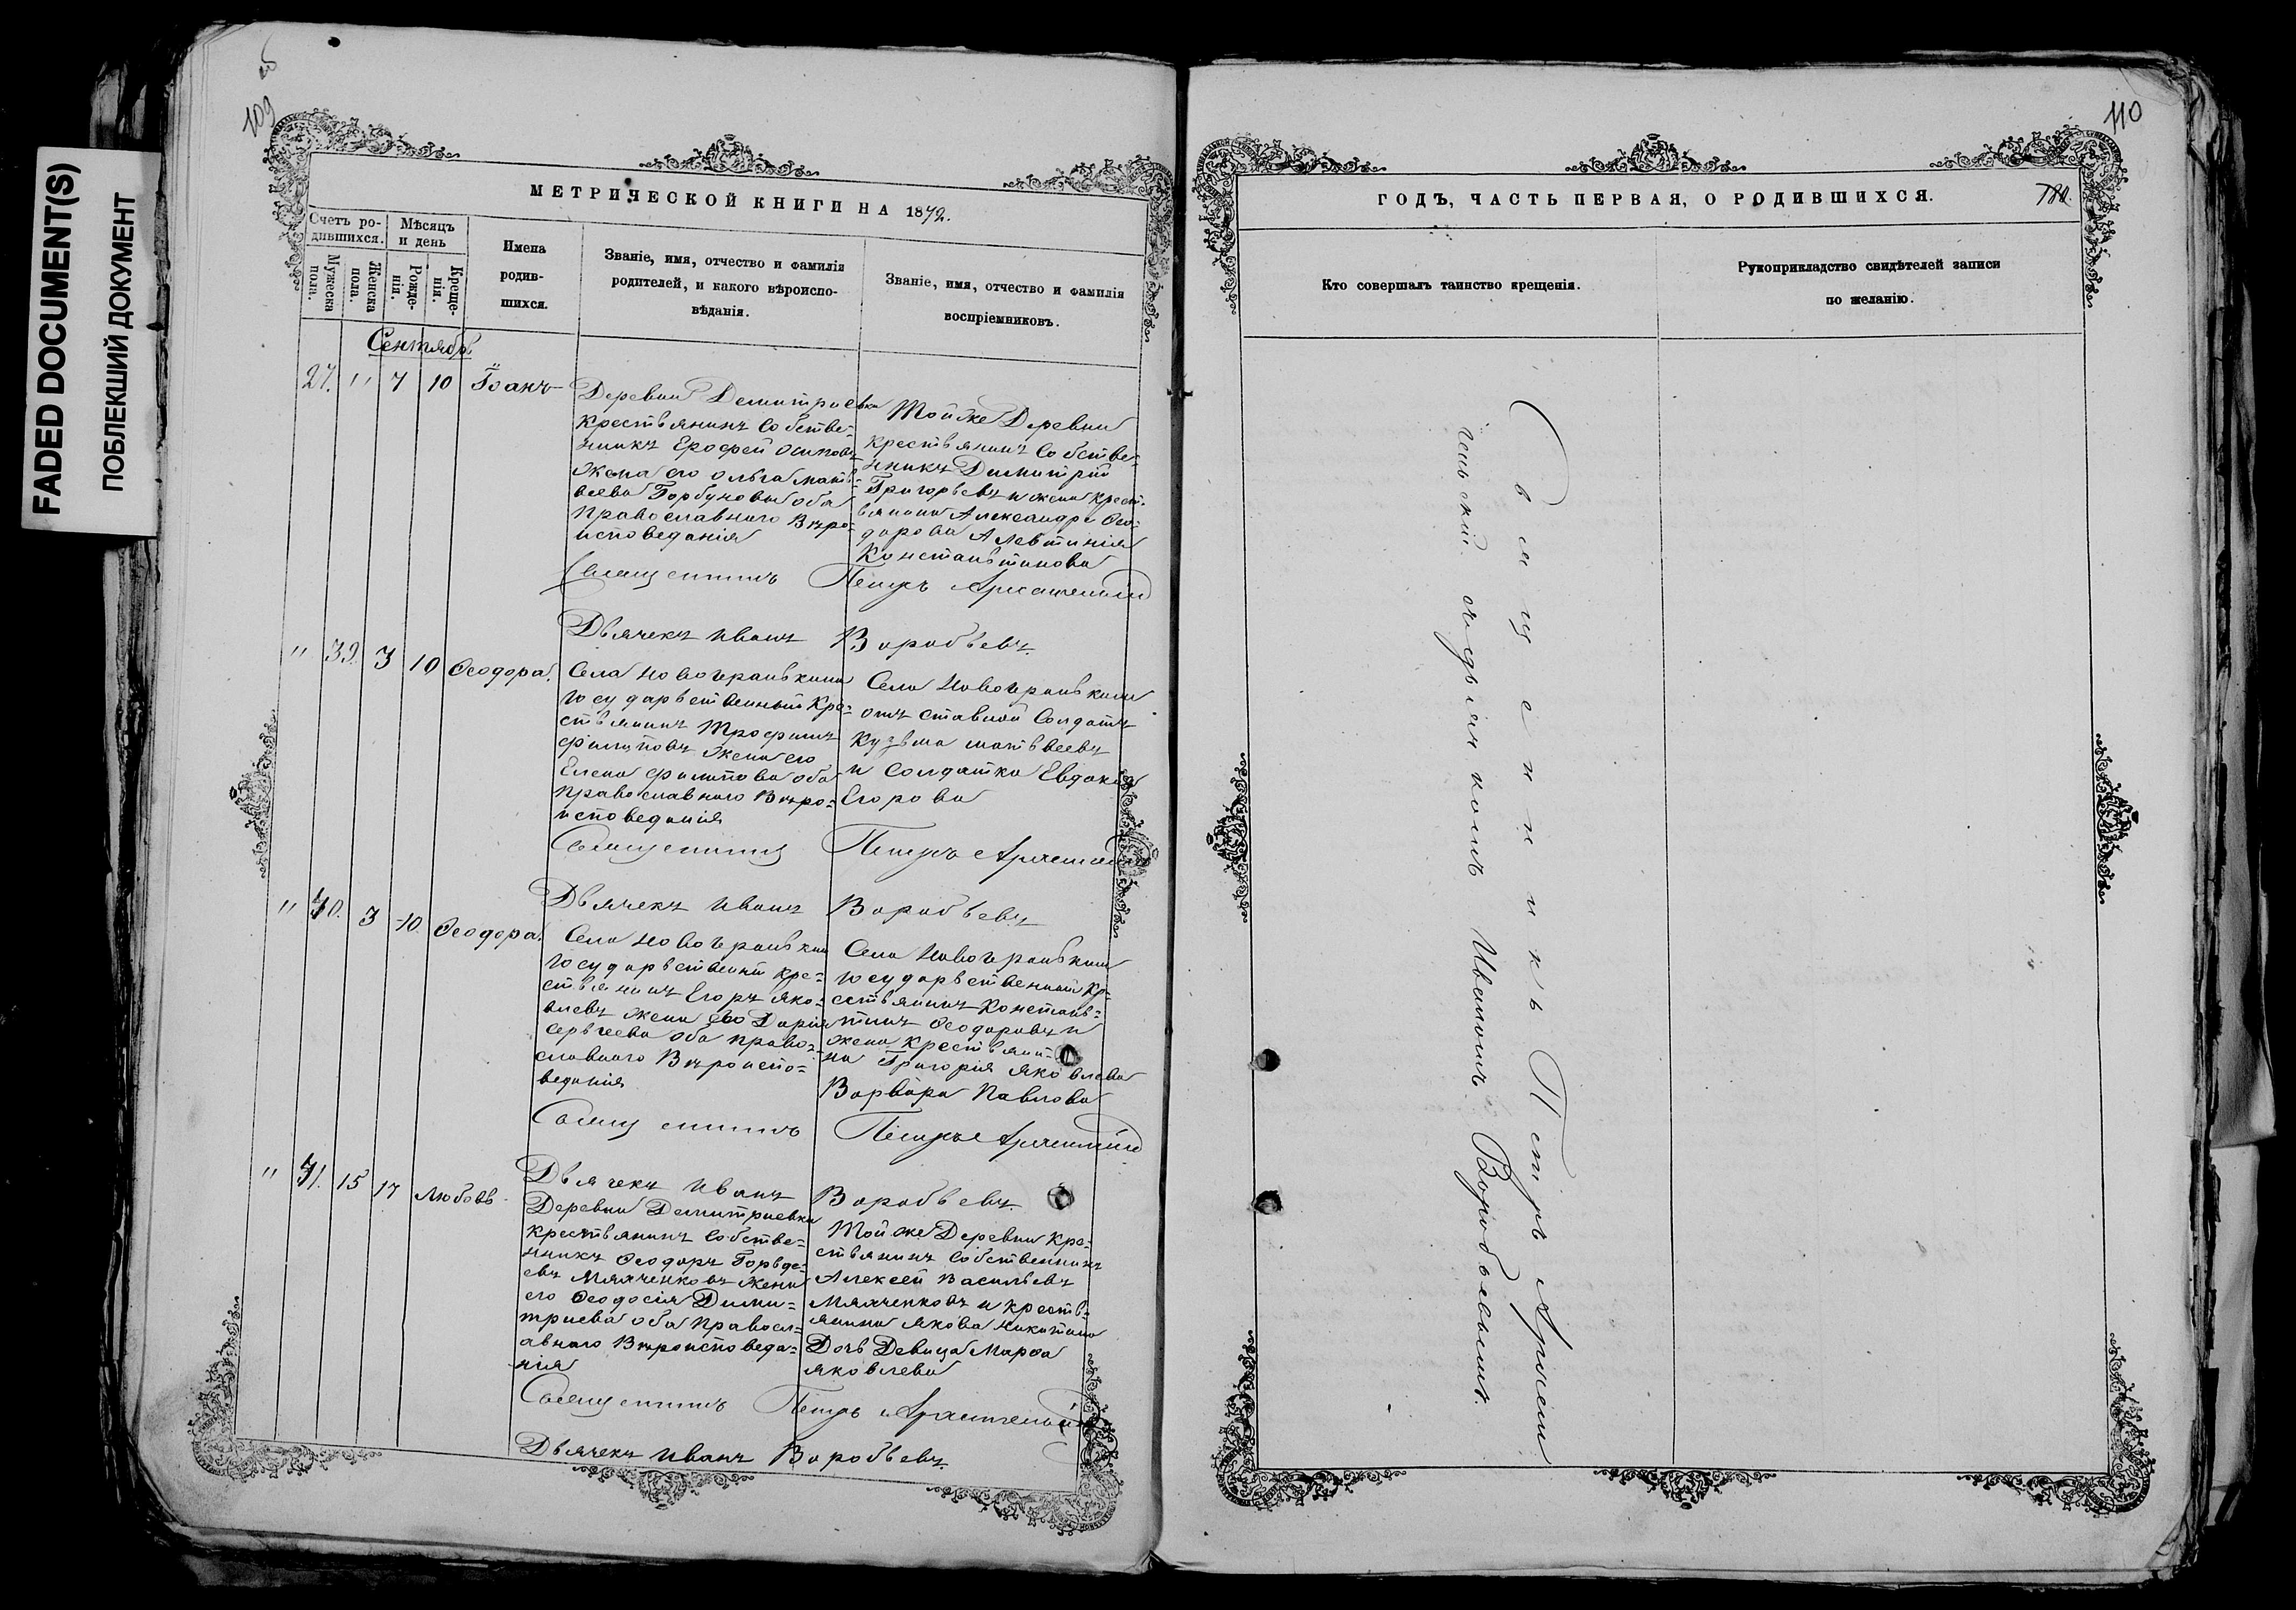 FADED DOCUMENT(S)
ПОБЛЕКШИЙ ДОКУМЕНТ
109
МЕТРИЧЕСКОЙ КНИГИ НА 1872.
Счетъ ро-
дившихся.
Мѣсяцъ
и день
Мужеска
пола.
Женска
пола.
Рожде-
нія.
Креще-
нія.
Имена
родив-
шихся.
Званіе, имя, отчество и фамилія
родителей, и какого вѣроиспо-
вѣданія.
Званіе, имя, отчество и фамилія
воспріемниковъ.
Сентябрь
27. " 7 10 Іоанъ
Деревни Демитриевки
крестьянинъ Собстве-
никъ Ерофей Осиповъ
жена его Ольга Матв-
веева Горбуновы оба
Православнаго Вѣро-
исповедания
Той же Деревни
крестьянинъ Собстве-
нникъ Димитрій
Григорьевъ и жена крест-
ьянина Александра Ѳео-
дорова Алевтинія
Константинова
Священникъ Петръ
Дьячекъ Иванъ Воробьевъ
" 39. 3 10 Ѳеодора.
Государственный Кре-
стьянинъ Трофимъ
Филиповъ жена его
Елена Филипова оба
Православнаго Вѣро-
исповедания
отставной Солдатъ
Кузьма Матвеевъ
и Солдатка Евдокия
Егорова
Священникъ Петръ
Дьячекъ Иванъ Воробьевъ
" 40. 3 10. Ѳеодора.
Государственный Кре-
стьянинъ Егоръ Яко-
влевъ жена его Дария
Сергеева оба Право-
славнаго Вѣроиспо-
ведания
Государственный Кр-
естьянинъ Констан-
тинъ Ѳеодоровъ и
жена крестьяни-
на Григория Яковлева
Варвара Павлова
Священникъ Петръ
Дьячекъ Иванъ Воробьевъ.
" 41. 15 17 Любовь
Деревни Демитриевки
крестьянинъ Собстве-
нникъ Ѳеодоръ Горде-
евъ Мялченковъ жена
его Ѳеодосія Дими-
триева оба Правосл-
авнаго Вѣроисповеда-
нія
Той же Деревни Кре-
стьянинъ Собственникъ
Алексей Васильевъ
Мялченковъ и кресть-
янина Якова Никитина
Дочь Девица Марѳа
Яковлева
Священникъ Петръ
Дьячекъ Иванъ Воробьевъ.
110
ГОДЪ, ЧАСТЬ ПЕРВАЯ, О РОДИВШИХСЯ.
180.
Кто совершалъ таинство крещенія.
Рукоприкладство свидѣтелей записи
по желанію.
Священникъ Петръ
съ дьячкомъ Иваномъ Воробьевымъ.